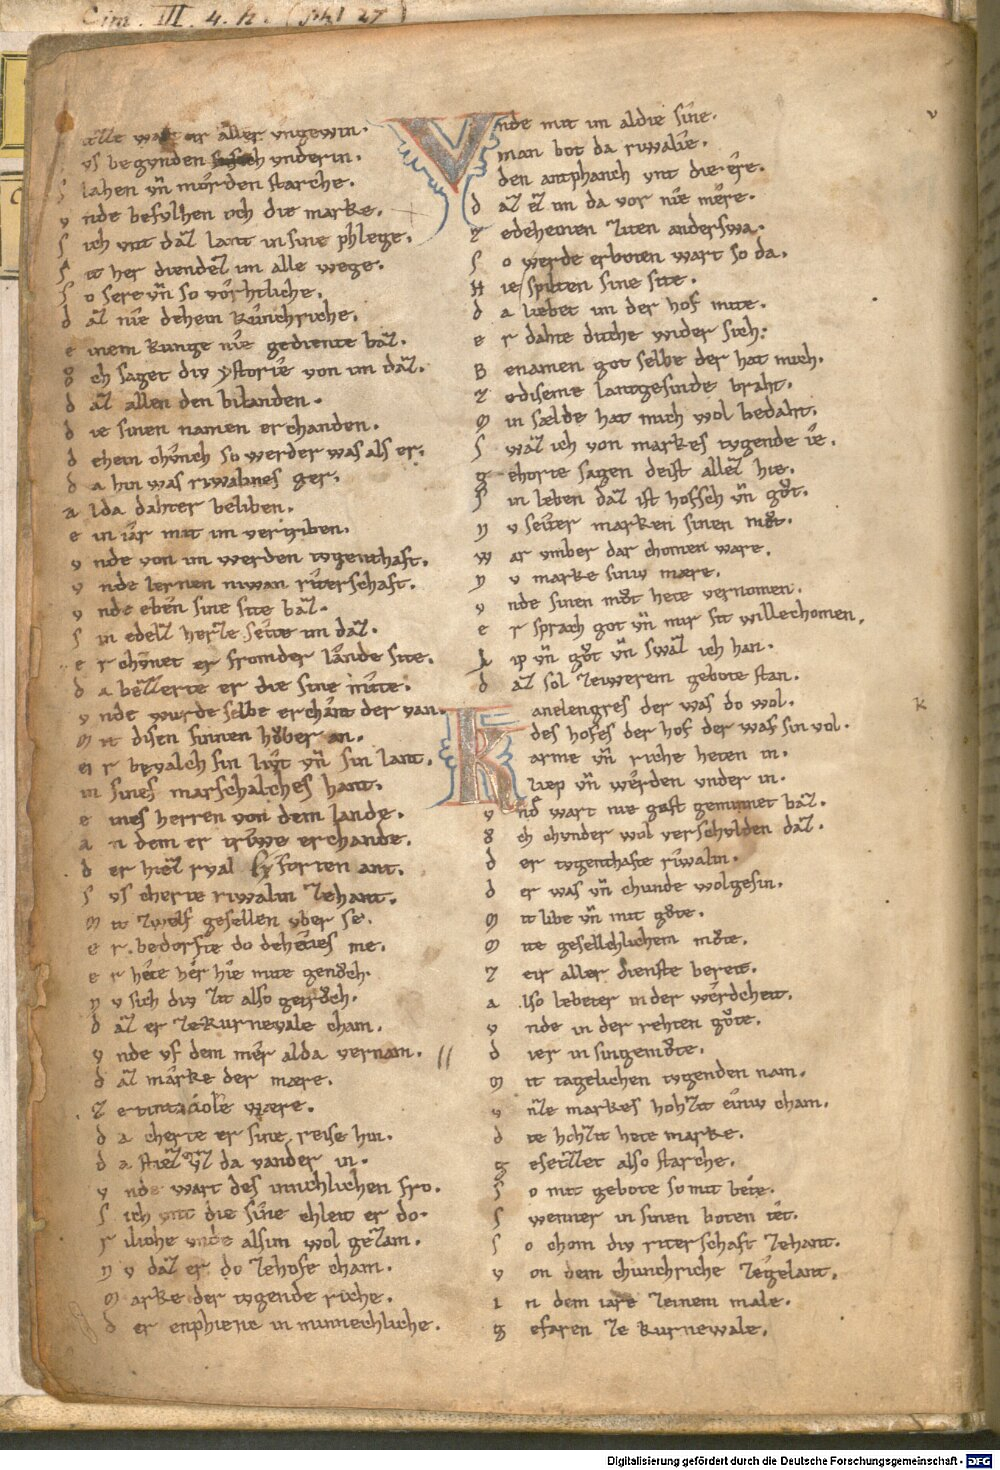 Cim. III. 4. h. (fol 27)
alle wart ir aller vngewin.
vs begvnden sich vnderin.
slahen vn morden starche.
vnde befvlhen och die marke.
sich vnt daz lant in sine phlege.
sit her diendez im alle wege.
so sere vn so vorhtliche.
daz nie dehein kunchriche.
einem kunge nie gediente baz.
och saget div ystorie von im daz.
daz allen den bilanden.
die sinen namen erchanden.
dehein chvnch so werder was als er.
da hin was riwalines ger.
alda dahter beliben.
ein iar mit im vertriben.
vnde von im werden tvgenthaft.
vnde lernen niwan riterschaft.
vnde eben sine site baz.
sin edelz herze seite im daz.
erchvnet er fromder lande site.
da bezzerte er die sine mite.
vnde wurde selbe erchant der van.
Mit disen sinnen hvber an.
er bevalch sin livt vn sin lant.
in sines marschalches hant.
eines herren von dem lande.
an dem er triwe erchande.
der hiez rval li foiten ant.
svs cherte riwalin zehant.
Mit zwelf gesellen vber se.
er bedorfte do deheines me.
er hete her hie mite genvch.
nv sich div zit also getrvch.
daz er zekurnevale cham.
vnde vf dem mer alda vernam.
daz marke der mære.
ze tintaiole wære.
da cherte er sine reise hin.
da stiez er vz da vander in.
vnde wart des innchlichen fro.
sich vnt die sine chleit er do.
riliche vnde alsim wol gezam.
nv daz er do zehofe cham.
Marke der tvgende riche.
der enphienc in minnechliche.
Vnde mit im aldie sine.
man bot da riwaline.
den antphanch vnt die ere.
daz ez im da vor nie mere.
zedeheinen ziten anderswa.
so werde erboten wart so da.
Hie spilten sine site.
da liebet im der hof mite.
er dahte diche wider sich:
Benamen got selbe der hat mich.
zediseme lantgesinde braht.
Min sælde hat mich wol bedaht.
swaz ich von markes tvgende ie.
gehorte sagen deist allez hie.
sin leben daz ist hofsch vn gvt.
nv seiter marken sinen mvt.
war vmber dar chomen ware.
nv marke siniv mære.
vnde sinen mvt hete vernomen.
er sprach got vn mir sit willechomen.
lip vn gvt vn swaz ich han.
daz sol ziwerem gebote stan.
Kanelengres der was do wol.
des hofes der hof der was sin vol.
arme vn riche heten in.
liep vn werden vnder in.
vnd wart nie gast geminnet baz.
och chvnder wol verschvlden daz.
der tvgenthafte riwalin.
der was vn chunde wolgesin.
Mit libe vn mit gvte.
Mite gesellechlichem mvte.
zeir aller dienste bereit.
also lebeter in der werdcheit.
vnde in der rehten gvte.
dier in singemvte.
Mit tagelichen tvgenden nam.
vnze markes hohzit einiv cham.
die hohzit hete marke.
gesezzet also starche.
so mit gebote so mit bete.
swenner in sinen boten tet.
so chom div riterschaft zehant.
von dem chunchriche zengelant.
in dem iare zeinem male.
gefaren ze kurnewale.
v
k
Digitalisierung gefördert durch die Deutsche Forschungsgemeinschaft - DFG